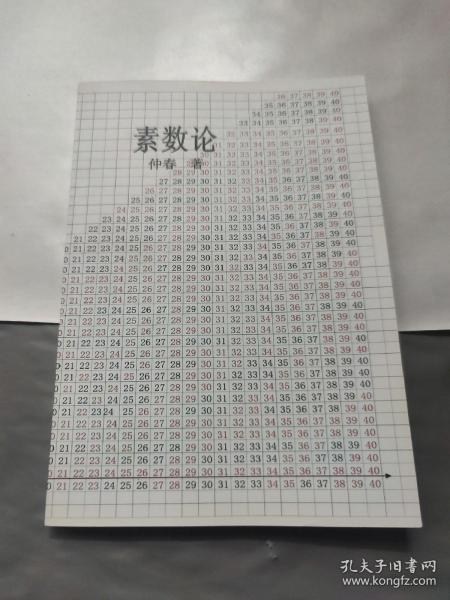 36 37 38 39 40
35 36 37 38 39 40
34 35 36 37 38 39 40
33 34 35 36 37 38 39 40
33 34 35 36 37 38 39 40
素数论
33 34 35 36 37 38 39 40
30 31 32 33 34 35 36 37 38 39 40
仲春 著
30 31 32 33 34 35 36 37 38 39 40
28 29 30 31 32 33 34 35 36 37 38 39 40
27 28 29 30 31 32 33 34 35 36 37 38 39 40
26 27 28 29 30 31 32 33 34 35 36 37 38 39 40
25 26 27 28 29 30 31 32 33 34 35 36 37 38 39 40
24 25 26 27 28 29 30 31 32 33 34 35 36 37 38 39 40
23 24 25 26 27 28 29 30 31 32 33 34 35 36 37 38 39 40
22 23 24 25 26 27 28 29 30 31 32 33 34 35 36 37 38 39 40
21 22 23 24 25 26 27 28 29 30 31 32 33 34 35 36 37 38 39 40
21 22 23 24 25 26 27 28 29 30 31 32 33 34 35 36 37 38 39 40
21 22 23 24 25 26 27 28 29 30 31 32 33 34 35 36 37 38 39 40
21 22 23 24 25 26 27 28 29 30 31 32 33 34 35 36 37 38 39 40
21 22 23 24 25 26 27 28 29 30 31 32 33 34 35 36 37 38 39 40
21 22 23 24 25 26 27 28 29 30 31 32 33 34 35 36 37 38 39 40
21 22 23 24 25 26 27 28 29 30 31 32 33 34 35 36 37 38 39 40
21 22 23 24 25 26 27 28 29 30 31 32 33 34 35 36 37 38 39 40
21 22 23 24 25 26 27 28 29 30 31 32 33 34 35 36 37 38 39 40
21 22 23 24 25 26 27 28 29 30 31 32 33 34 35 36 37 38 39 40
21 22 23 24 25 26 27 28 29 30 31 32 33 34 35 36 37 38 39 40
21 22 23 24 25 26 27 28 29 30 31 32 33 34 35 36 37 38 39 40
21 22 23 24 25 26 27 28 29 30 31 32 33 34 35 36 37 38 39 40
21 22 23 24 25 26 27 28 29 30 31 32 33 34 35 36 37 38 39 40
21 22 23 24 25 26 27 28 29 30 31 32 33 34 35 36 37 38 39 40
21 22 23 24 25 26 27 28 29 30 31 32 33 34 35 36 37 38 39 40
21 22 23 24 25 26 27 28 29 30 31 32 33 34 35 36 37 38 39 40
21 22 23 24 25 26 27 28 29 30 31 32 33 34 35 36 37 38 39 40
21 22 23 24 25 26 27 28 29 30 31 32 33 34 35 36 37 38 39 40
21 22 23 24 25 26 27 28 29 30 31 32 33 34 35 36 37 38 39 40
21 22 23 24 25 26 27 28 29 30 31 32 33 34 35 36 37 38 39 40
21 22 23 24 25 26 27 28 29 30 31 32 33 34 35 36 37 38 39 40
21 22 23 24 25 26 27 28 29 30 31 32 33 34 35 36 37 38 39 40
孔夫子旧书网
www.kongfz.com